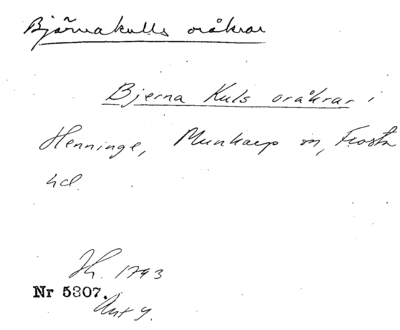 Björnakulls oråkrar
Bjerna Kuls oråkrar i
Henninge, Munkarp sn, Frosta
hd.
Sh. 1793
Nr 5307.
Akt 9.